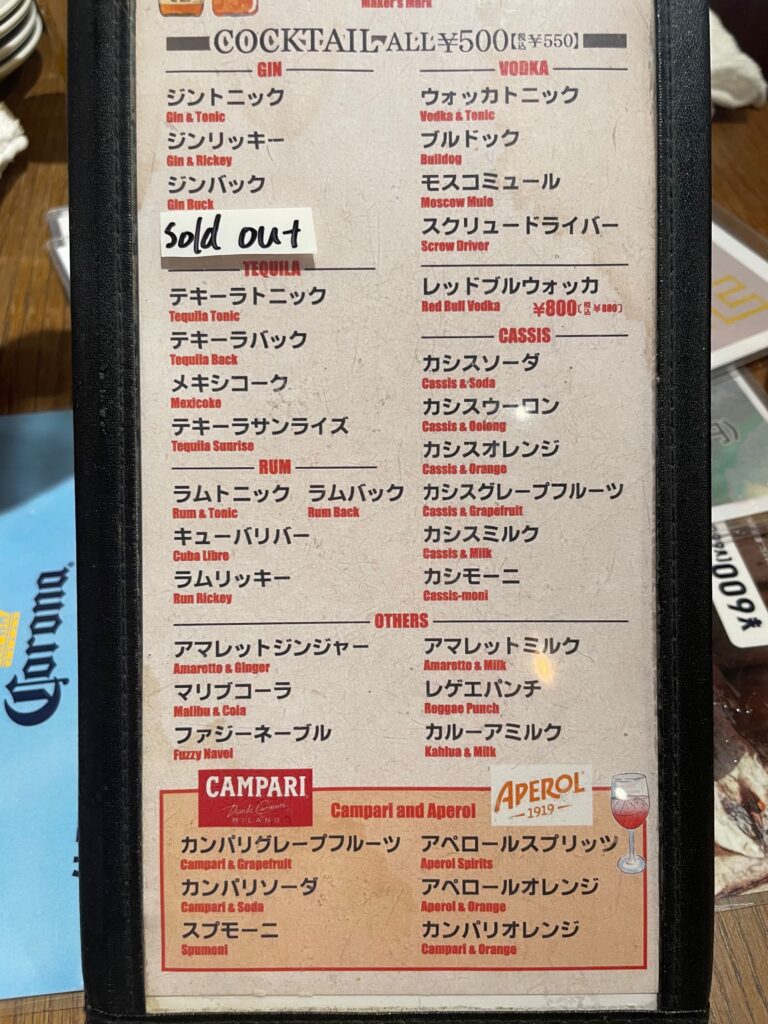 Maker's Mark
COCKTAIL ALL ¥500【税込¥550】
GIN
ジントニック
Gin & Tonic
ジンリッキー
Gin & Rickey
ジンバック
Gin Buck
Sold out
TEQUILA
テキーラトニック
Tequila Tonic
テキーラバック
Tequila Back
メキシコーク
Mexicoke
テキーラサンライズ
Tequila Sunrise
RUM
ラムトニック ラムバック
Rum & Tonic Rum Back
キューバリバー
Cuba Libre
ラムリッキー
Run Rickey
VODKA
ウォッカトニック
Vodka & Tonic
ブルドック
Bulldog
モスコミュール
Moscow Mule
スクリュードライバー
Screw Driver
レッドブルウォッカ
Red Bull Vodka ¥800〔税込¥880〕
CASSIS
カシスソーダ
Cassis & Soda
カシスウーロン
Cassis & Oolong
カシスオレンジ
Cassis & Orange
カシスグレープフルーツ
Cassis & Grapefruit
カシスミルク
Cassis & Milk
カシモーニ
Cassis-moni
OTHERS
アマレットジンジャー
Amaretto & Ginger
マリブコーラ
Malibu & Cola
ファジーネーブル
Fuzzy Navel
アマレットミルク
Amaretto & Milk
レゲエパンチ
Reggae Punch
カルーアミルク
Kahlua & Milk
CAMPARI
MILANO
Campari and Aperol
APEROL
1919
カンパリグレープフルーツ
Campari & Grapefruit
カンパリソーダ
Campari & Soda
スプモーニ
Spumoni
アペロールスプリッツ
Aperol Spirits
アペロールオレンジ
Aperol & Orange
カンパリオレンジ
Campari & Orange
Corona